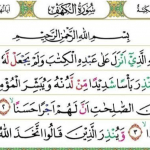 سُورَةُ الكَهْفِ
بِسْمِ اللَّهِ الرَّحْمَٰنِ الرَّحِيمِ
أَنزَلَ عَلَىٰ عَبْدِهِ الْكِتَٰبَ وَلَمْ يَجْعَل لَّهُ
بَأْسًا شَدِيدًا مِّن لَّدُنْهُ وَيُبَشِّرَ
الصَّٰلِحَٰتِ أَنَّ لَهُمْ أَجْرًا حَسَنًا ٢
٣ وَيُنذِرَ الَّذِينَ قَالُوا اتَّخَذَ اللَّهُ